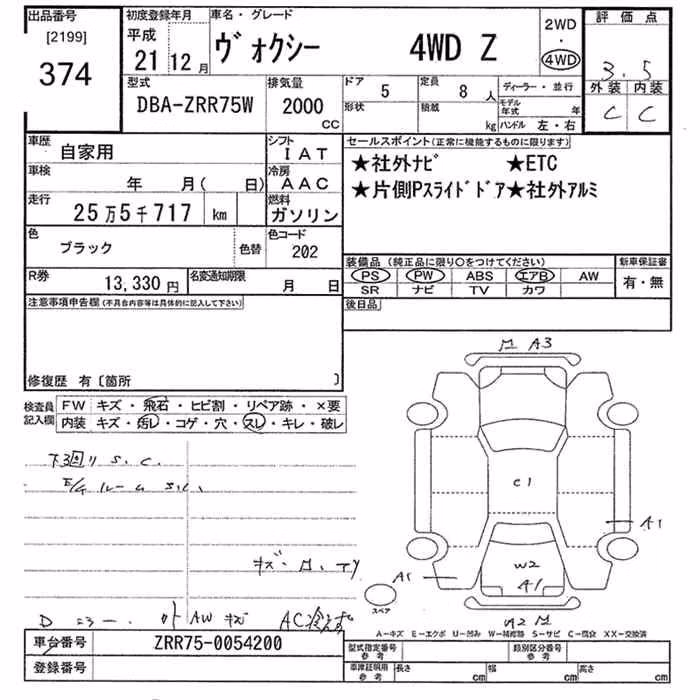 出品番号 初度登録年月 車名・グレード 2WD 評価点
[2199] 平成 ・
374 21 12月 ヴォクシー 4WD Z 4WD 3.5
外装 内装
C C
型式 排気量 ドア 5 定員 8人 ディーラー・並行
DBA-ZRR75W 2000 CC 形状 積載 kg モデル年式 年
ハンドル 左・右
車歴 自家用 シフト IAT セールスポイント(正常に機能するものに限ります)
車検 年 月( 日) 冷房 AAC ★社外ナビ ★ETC
走行 25万5千717 km 燃料 ガソリン ★片側Pスライドドア★社外アルミ
色 ブラック 色替 色コード 202
装備品(純正品に限り○をつけてください) 新車保証書
R券 13,330円 名変通知期限 月 日 PS PW ABS エアB AW 有・無
SR ナビ TV カワ
注意事項申告欄(不具合内容等は具体的に記入して下さい) 後日品
修復歴 有〔箇所 〕
A3
検査員 FW キズ・飛石・ヒビ割・リペア跡・×要
記入欄 内装 キズ・汚レ・コゲ・穴・スレ・キレ・破レ
下回り S.C.
E/gルーム S.C.
C1
A1
W2
A1
A1
スペア
D AW キズ AC
W2
A-キズ E-エクボ U-凹み W-補修跡 S-サビ C-腐食 XX-交換済
車台番号 ZRR75-0054200 型式指定番号 参考 類別区分番号 参考
登録番号 車庫証明用 参考 長さ cm 幅 cm 高さ cm